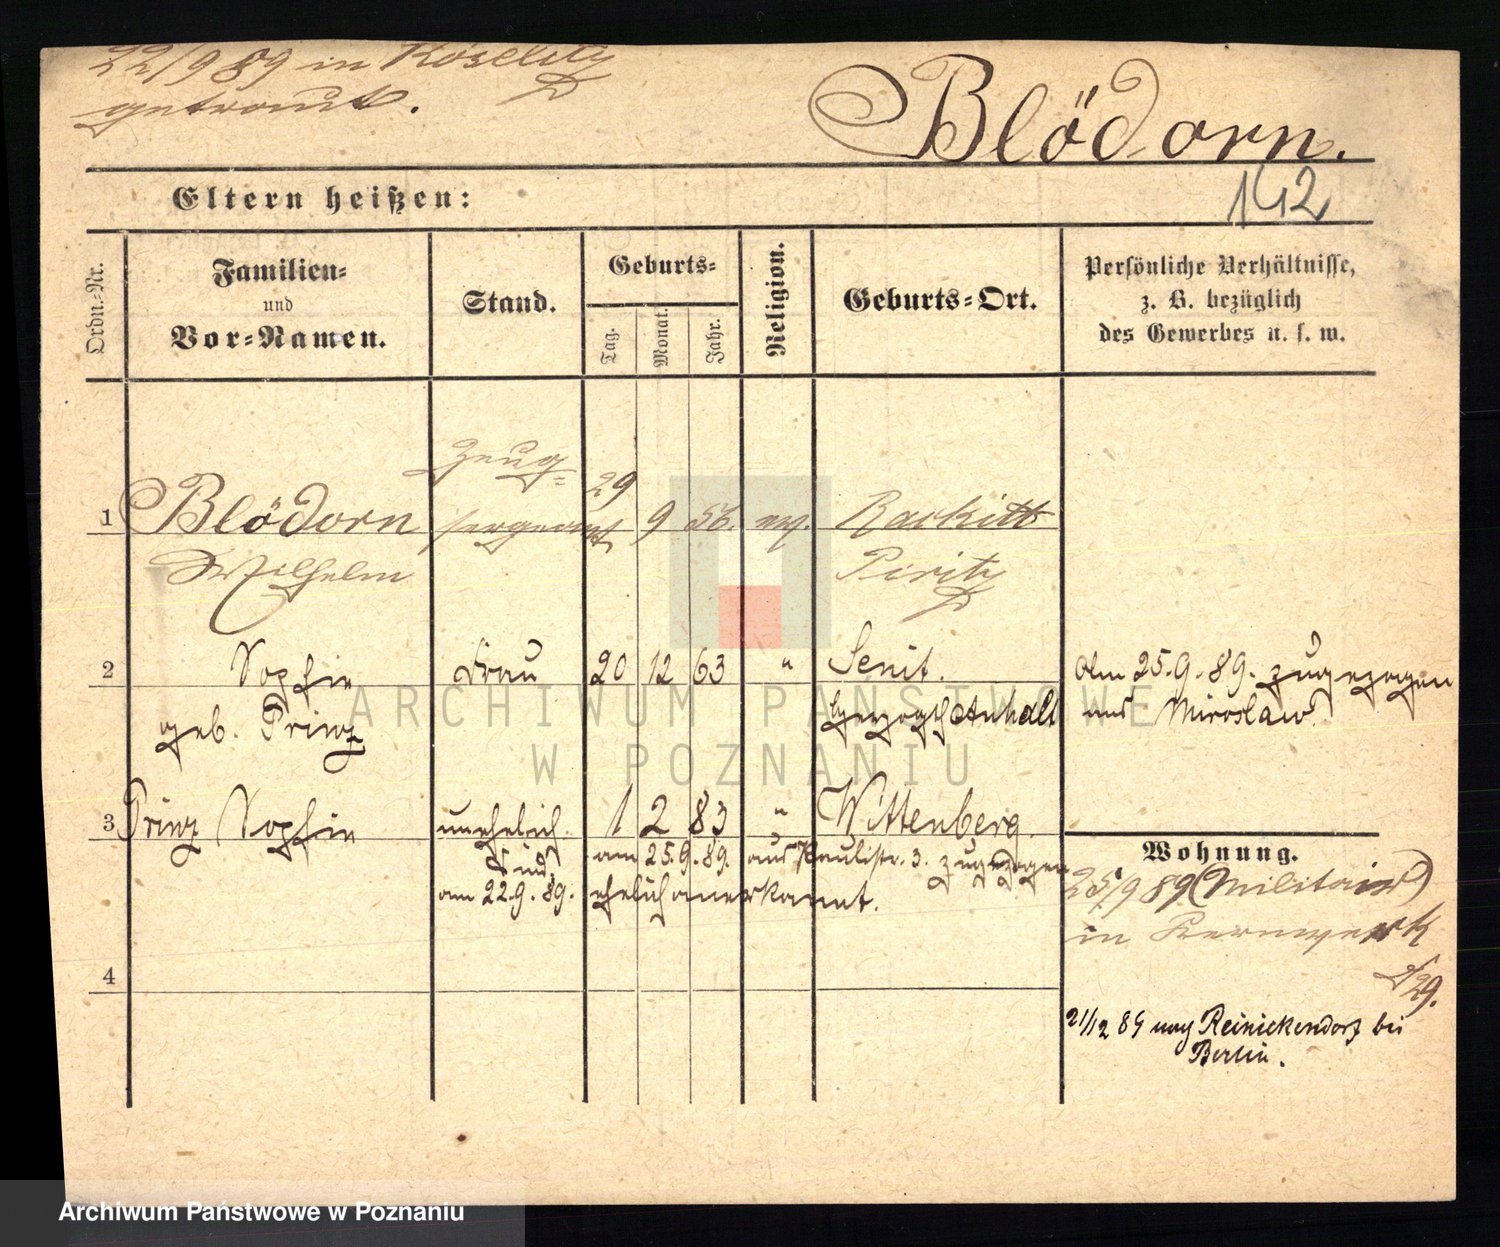 22/9 89 in Köselitz
getraut.
Blödorn.
142
Eltern heißen:
Ordn.-Nr.
Familien-
und
Vor-Namen.
Stand.
Geburts-
Tag.
Monat.
Jahr.
Religion.
Geburts-Ort.
Persönliche Verhältnisse,
z. B. bezüglich
des Gewerbes u. s. w.
1 Blödorn Zeug- 29 9 56. ev. Rackitt
Wilhelm sergeant Piritz
2 Sophie Frau 20 12 63 " Senit. Am 25.9.89. zugezogen
geb. Prinz Herzogth Anhalt aus Miroslaw.
3 Prinz Sophie unehelich. 1 2 83 " Wittenberg.
Kind, am 25.9.89. aus Paulistr. 3. zugezogen
am 22.9.89. ehelich anerkannt.
Wohnung.
25/9 89 (Militair)
in Kernwerk
29.
4
21/12 89 nach Reinickendorf bei
Berlin.
ARCHIWUM PAŃSTWOWE
W POZNANIU
Archiwum Państwowe w Poznaniu